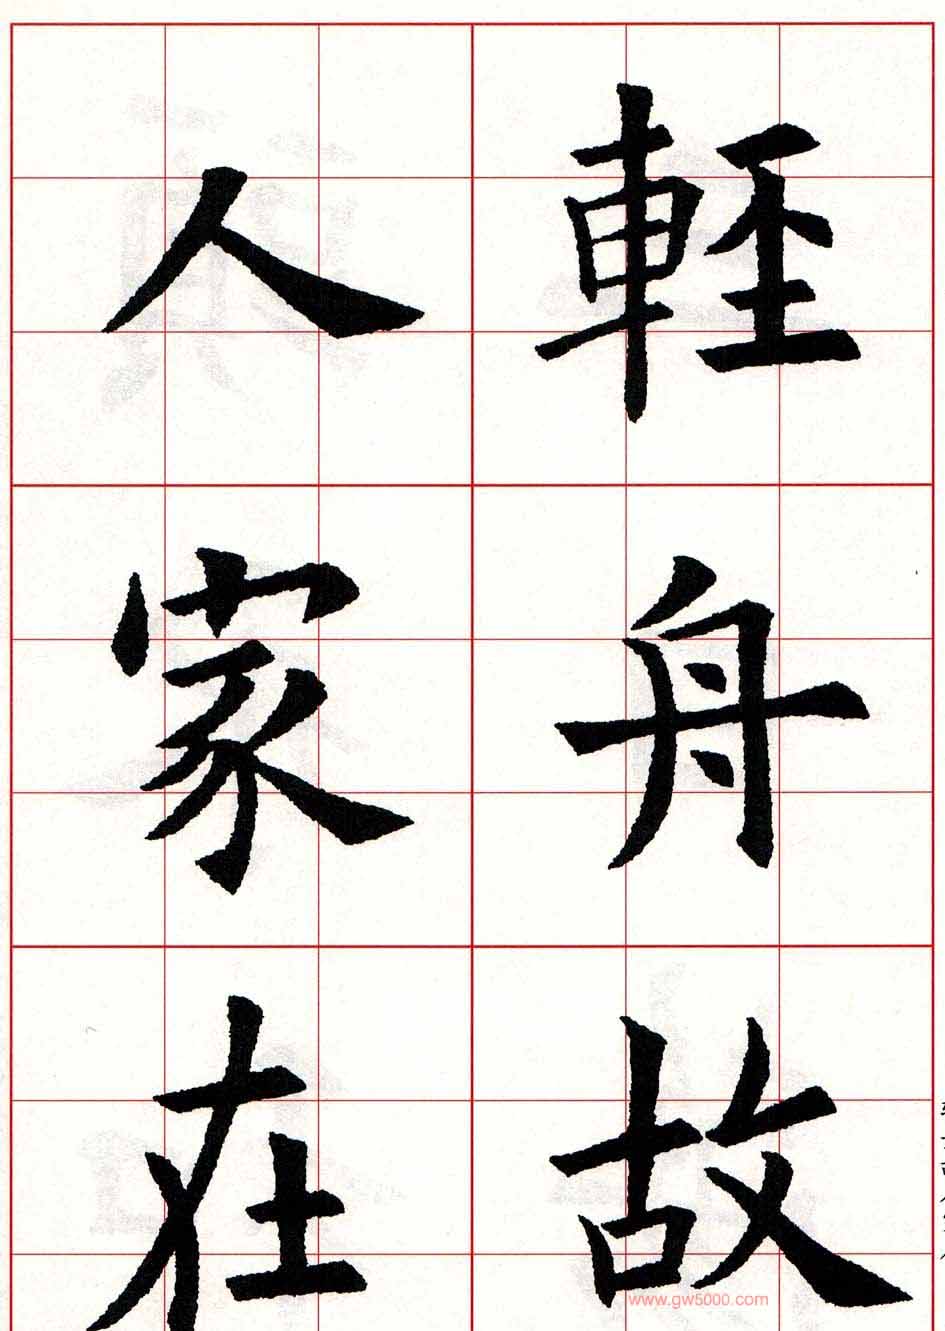 輕舟故
人家在
www.gw5000.com